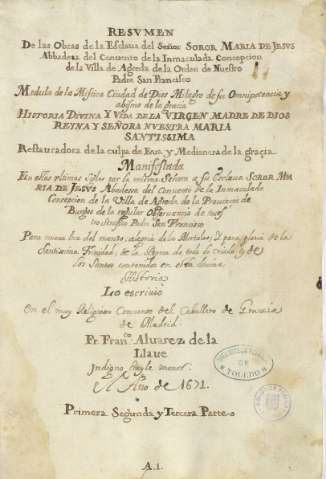 RESVMEN
De las Obras de la Esclaua del Señor SOROR MARIA DE IESVS
Abbadesa del Conuento de la Inmaculada Concepcion
de la Villa de Agreda de la Orden de Nuestro
Padre San Francisco
Medula de la Mistica Ciudad de Dios Milagro de su Omnipotencia y
abismo de la gracia
HISTORIA DIVINA Y VIDA DE LA VIRGEN MADRE DE DIOS
REYNA Y SEÑORA NVESTRA MARIA
SANTISSIMA
Restauradora de la culpa de Eva, y Medianera de la gracia
Manifestada
En estos ultimos siglos por la misma Señora a su Esclaua SOROR MA
RIA DE IESVS Abadesa del Conuento de la Inmaculada
Concepcion de la Villa de Agreda de la Prouincia de
Burgos de la regular Obseruancia de nues
tro Serafico Padre San Francisco
Para nueua luz del mundo, alegria de los Mortales, y para gloria de la
Santissima Trinidad, de la Reyna de todo lo criado, y de
los Santos contenidos en esta diuina
Historia
Lo escriuio
En el muy Religioso Conuento del Cauallero de Gracia
de Madrid
Fr. Franco. Aluarez de la
Llaue
Indigno frayle menor.
Año de 1671.
Primera Segunda y Tercera Parte
TOLEDO
A.1.